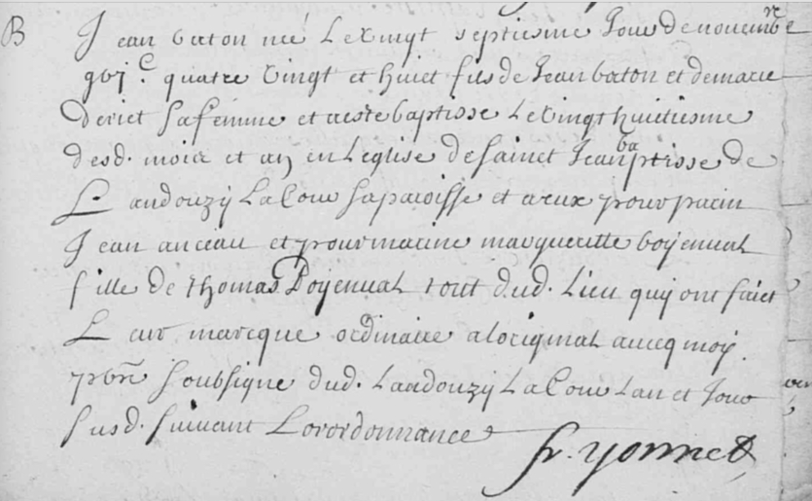 B
Jean baton né Le vingt septiesme Jour de novembre
xvi c. quatre vingt et huict fils de Jean baton et de marie
deriet sa femme et a esté baptisse Le vingt huitiesme
desd. mois et an en L'eglise de sainct Jean baptisse de
Landouzÿ La Cour sa paroisse et a eux pour parin
Jean anceau et pour marine margueritte boÿenual
fille de thomas Boÿenual tout dud. Lieu quÿ ont faict
Leur marcque ordinaire a loriginal auecq moÿ
soubsigne dud. Landouzÿ La Cour Lan et Jour
susd. suiuant Lorordonnance
fr. yonnet